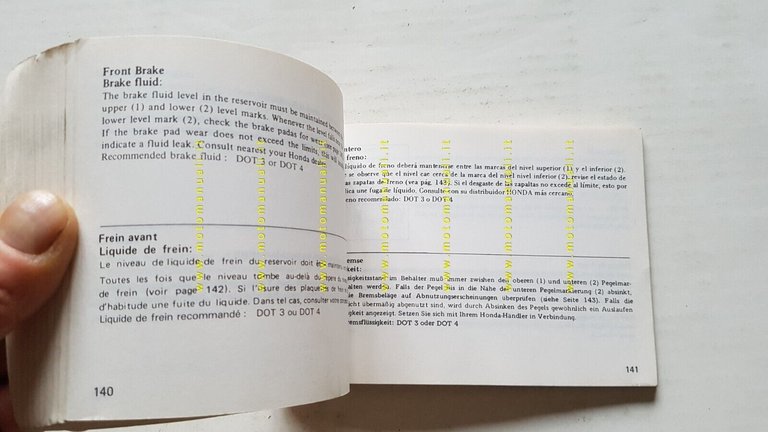 Front Brake
Brake fluid:
The brake fluid level in the reservoir must be maintained
upper (1) and lower (2) level marks. Whenever the level falls
lower level mark (2), check the brake padas for wear
If the brake pad wear does not exceed the limits, this will
indicate a fluid leak. Consult nearest your Honda dealer.
Recommended brake fluid : DOT 3 or DOT 4
Frein avant
Liquide de frein:
Le niveau de liquide de frein du reservoir doit être
Toutes les fois que le niveau tombe au-delà du
de frein (voir page 142). Si l'usure des plaquettes de
d'habitude une fuite du liquide. Dans tel cas, consulter votre
Liquide de frein recommandé : DOT 3 ou DOT 4
140
freno:
líquido de freno deberá mantenerse entre las marcas del nivel superior (1) y el inferior (2).
se observe que el nivel cae cerca de la marca del nivel inferior (2), revise el estado de
las zapatas de freno (vea pág. 143). Si el desgaste de las zapaltas no excede al límite, esto por
lica una fuga de líquido. Consulte con su distribuidor HONDA más cercano.
eno recomendado: DOT 3 o DOT 4
emse
keit:
gkeitsstand im Behälter muß immer zwischen den oberen (1) und unteren (2) Pegelmar-
alten werden. Falls der Pegel bis in die Nähe der unteren Pegelmarkierung (2) absinkt,
ie Bremsbeläge auf Abnutzungserscheinungen überprüfen (siehe Seite 143). Falls die
icht übermäßig abgenutzt sind, wird durch Absinken des Pegels gewöhnlich ein Auslaufen
igkeit angezeigt. Setzen Sie sich mit Ihrem Honda-Händler in Verbindung.
remsflüssigkeit: DOT 3 oder DOT 4
141
www.motomanuali.it
www.motomanuali.it
www.motomanuali.it
www.motomanuali.it
www.motomanuali.it
www.motomanuali.it